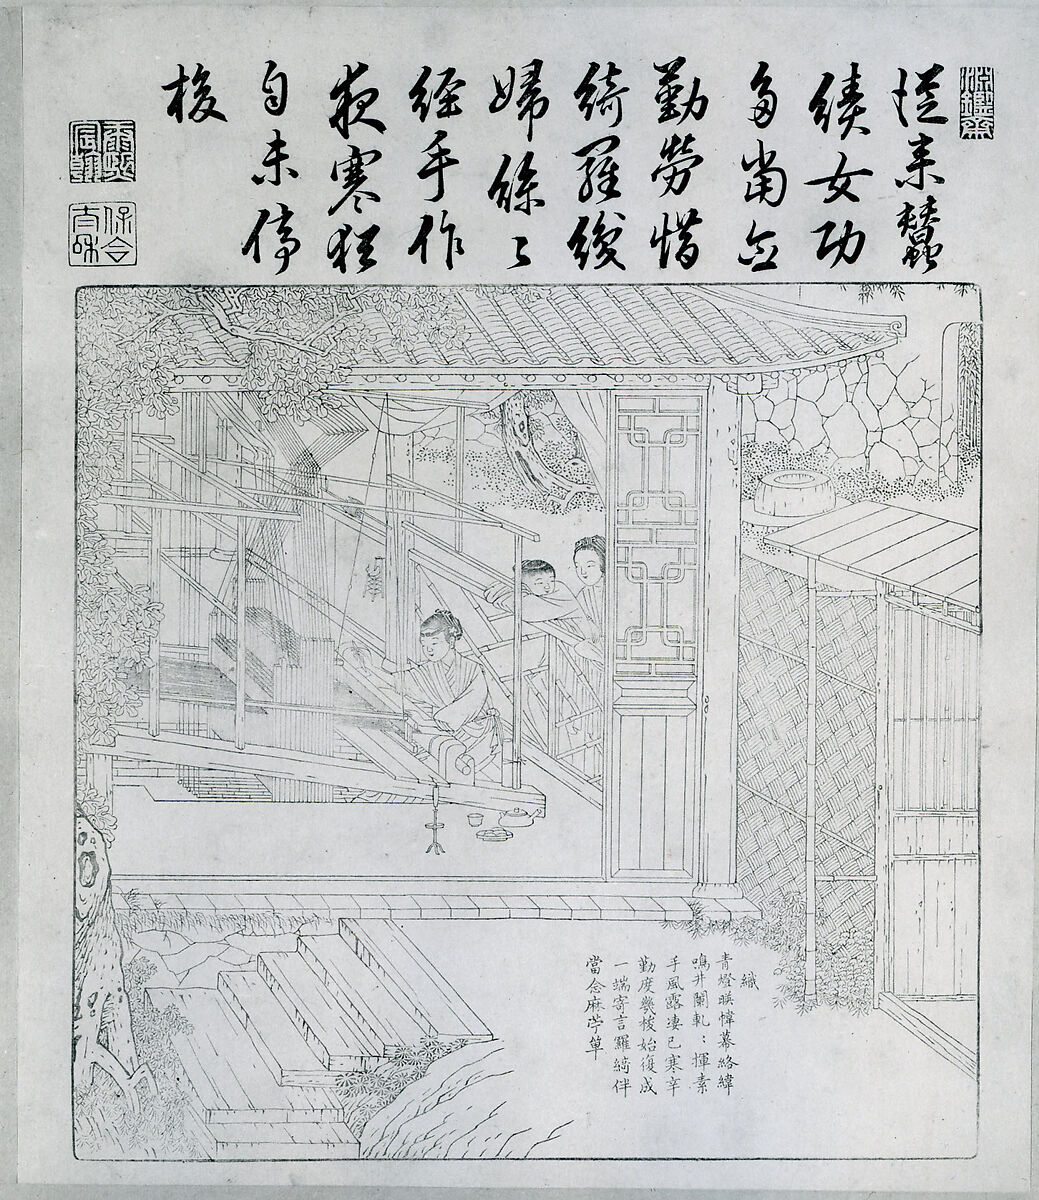 淵鑒齋
從来蠶
績女功
多當念
勤勞惜
綺羅織
婦絲〻
經手作
夜寒猶
自未停
梭
康熙宸翰
保合太和
織
青燈暎幃幕絡緯
鳴井闌軋〻揮素
手風露凄已寒辛
勤度幾梭始復成
一端寄言羅綺伴
當念麻苧單